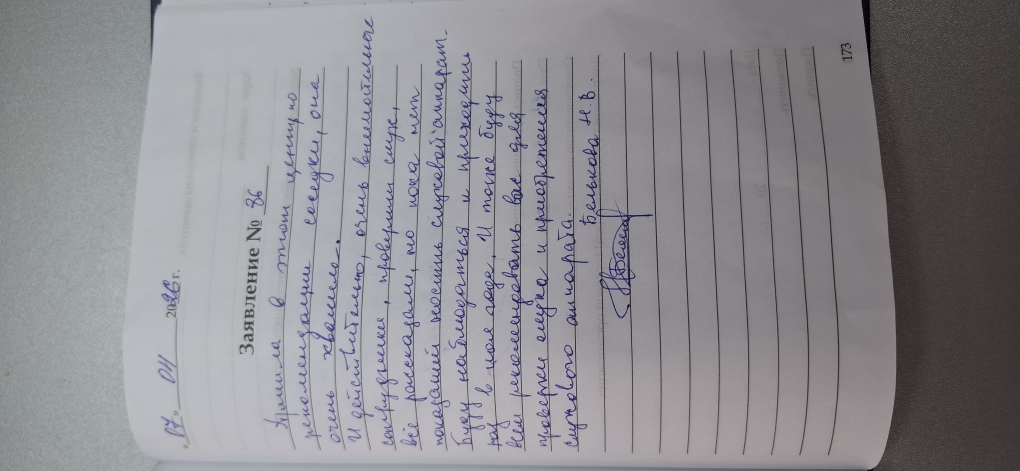 «17» 04 2026г.
Заявление № 86
Пришла в этот центр по
рекомендации соседки, она
очень хвалила.
И действительно, очень внимательные
сотрудники, проверили слух,
всё рассказали, но пока нет
показаний носить слуховой аппарат.
Буду наблюдаться и приходить
раз в пол года. И тоже буду
всем рекомендовать вас для
проверки слуха и приобретения
слухового аппарата.
Белькова Н.В.
173